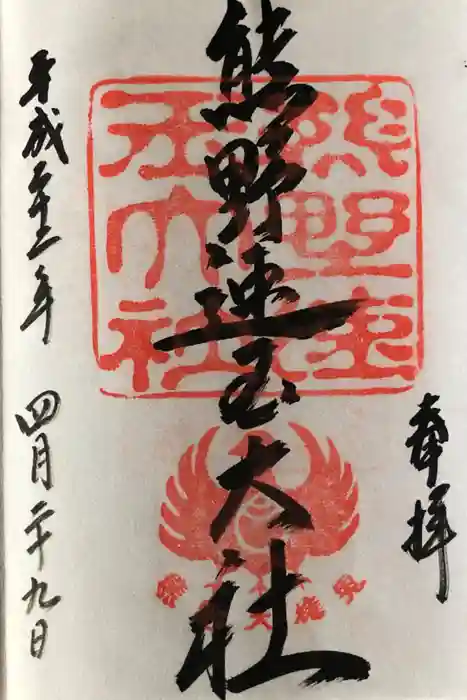 奉拝
熊野速玉大社
熊野速
玉大社
平成二十二年 四月二十九日